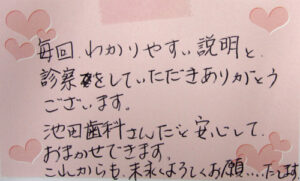 毎回、わかりやすい説明と、
診察をしていただきありがとう
ございます。
池田歯科さんだと安心して、
おまかせできます。
これからも、末永くよろしくお願…たします。